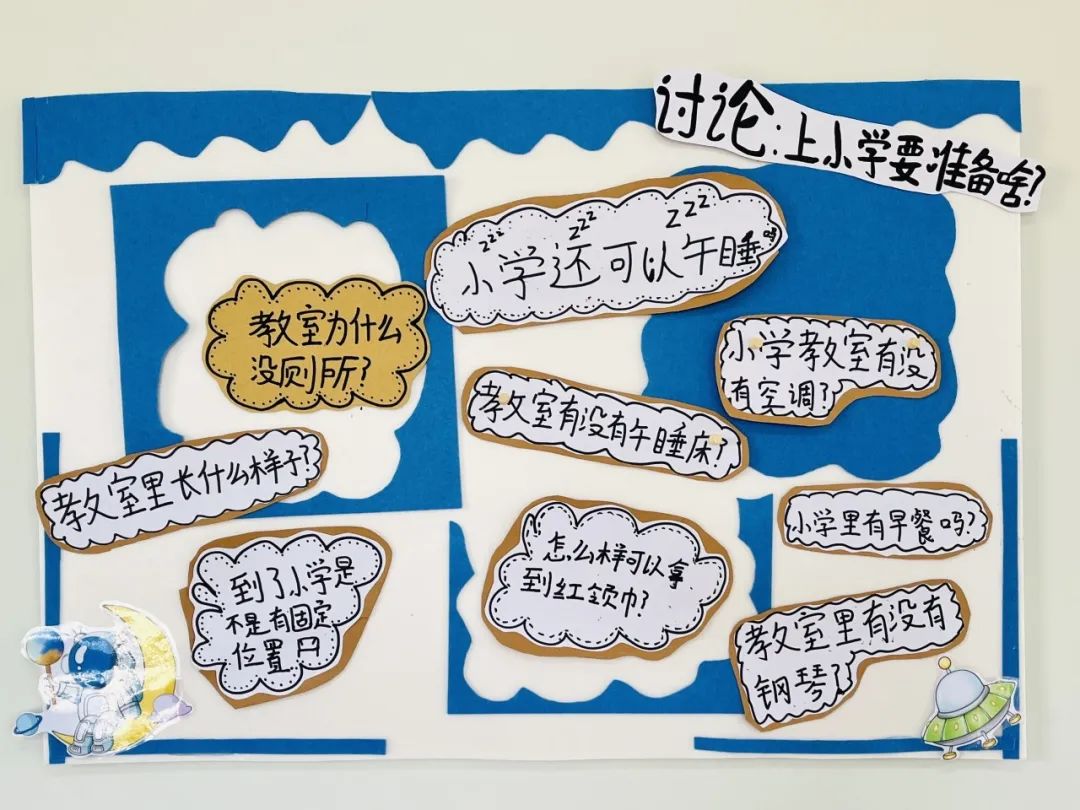 讨论:上小学要准备啥?
zzz
zzz
zzz
小学还可以午睡吗
教室为什么
没厕所?
小学教室有没
有空调?
教室有没有午睡床?
教室里长什么样子?
小学里有早餐吗?
到了小学是
不是有固定
位置
怎么样可以拿
到红领巾?
教室里有没有
钢琴?